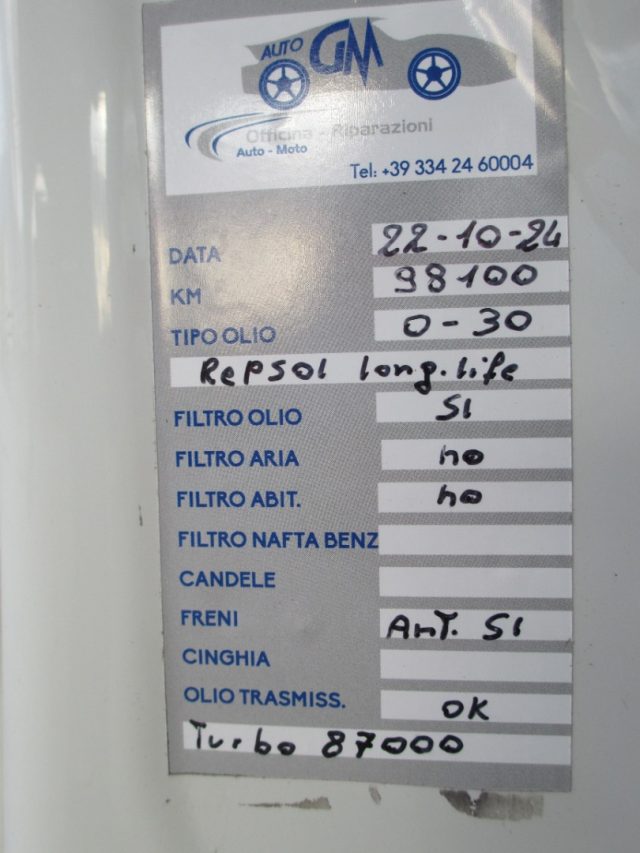 AUTO GM
Officina - Riparazioni
Auto - Moto
Tel: +39 334 24 60004
DATA 22-10-24
KM 98100
TIPO OLIO 0-30
RePSOl long.life
FILTRO OLIO SI
FILTRO ARIA no
FILTRO ABIT. no
FILTRO NAFTA BENZ
CANDELE
FRENI AnT. SI
CINGHIA
OLIO TRASMISS. OK
Turbo 87000